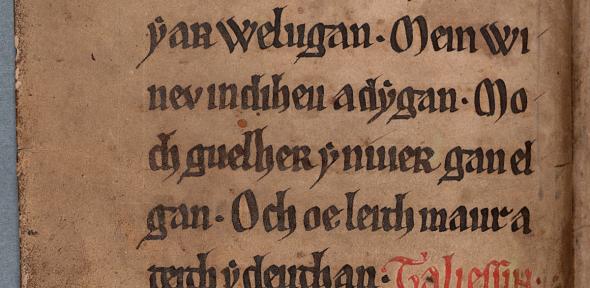 ẏ ar welugan · Mein wi
nev in diheu a dẏgan · Mo
ch guelher ẏ niuer gan el
gan · Och oe leith maur a
teith ẏ deuthan · Taliessin ·